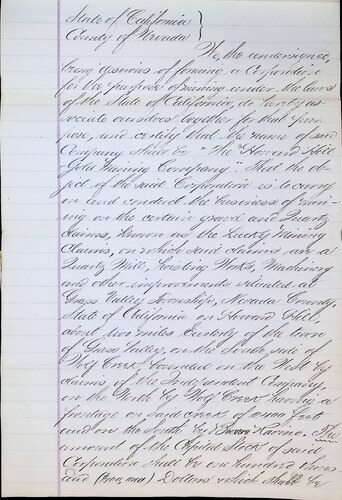 State of California }
County of Nevada }
We, the undersigned,
being desirous of forming a Corporation
for the purpose of mining under the laws
of the State of California, do hereby as-
sociate ourselves together for that pur-
pose, and certify that the name of said
Company shall be "The Howard Hill
Gold Mining Company". That the ob-
ject of the said Corporation is to carry
on and conduct the business of min-
ing on the certain gravel and Quartz
Claims, known as the Lucky Mining
Claims, on which said claims are a
Quartz Mill, Hoisting Works, Machinery
and other improvements situated at
Grass Valley Township, Nevada County,
State of California on Howard Hill,
about two miles Easterly of the town
of Grass Valley, on the South side of
Wolf Creek, bounded on the West by
claims of the Independent Company,
on the North by Wolf Creek having a
frontage on said creek of feet
and on the South by Ravine. The
amount of the Capital Stock of said
Corporation shall be one hundred thous-
and Dollars which shall be